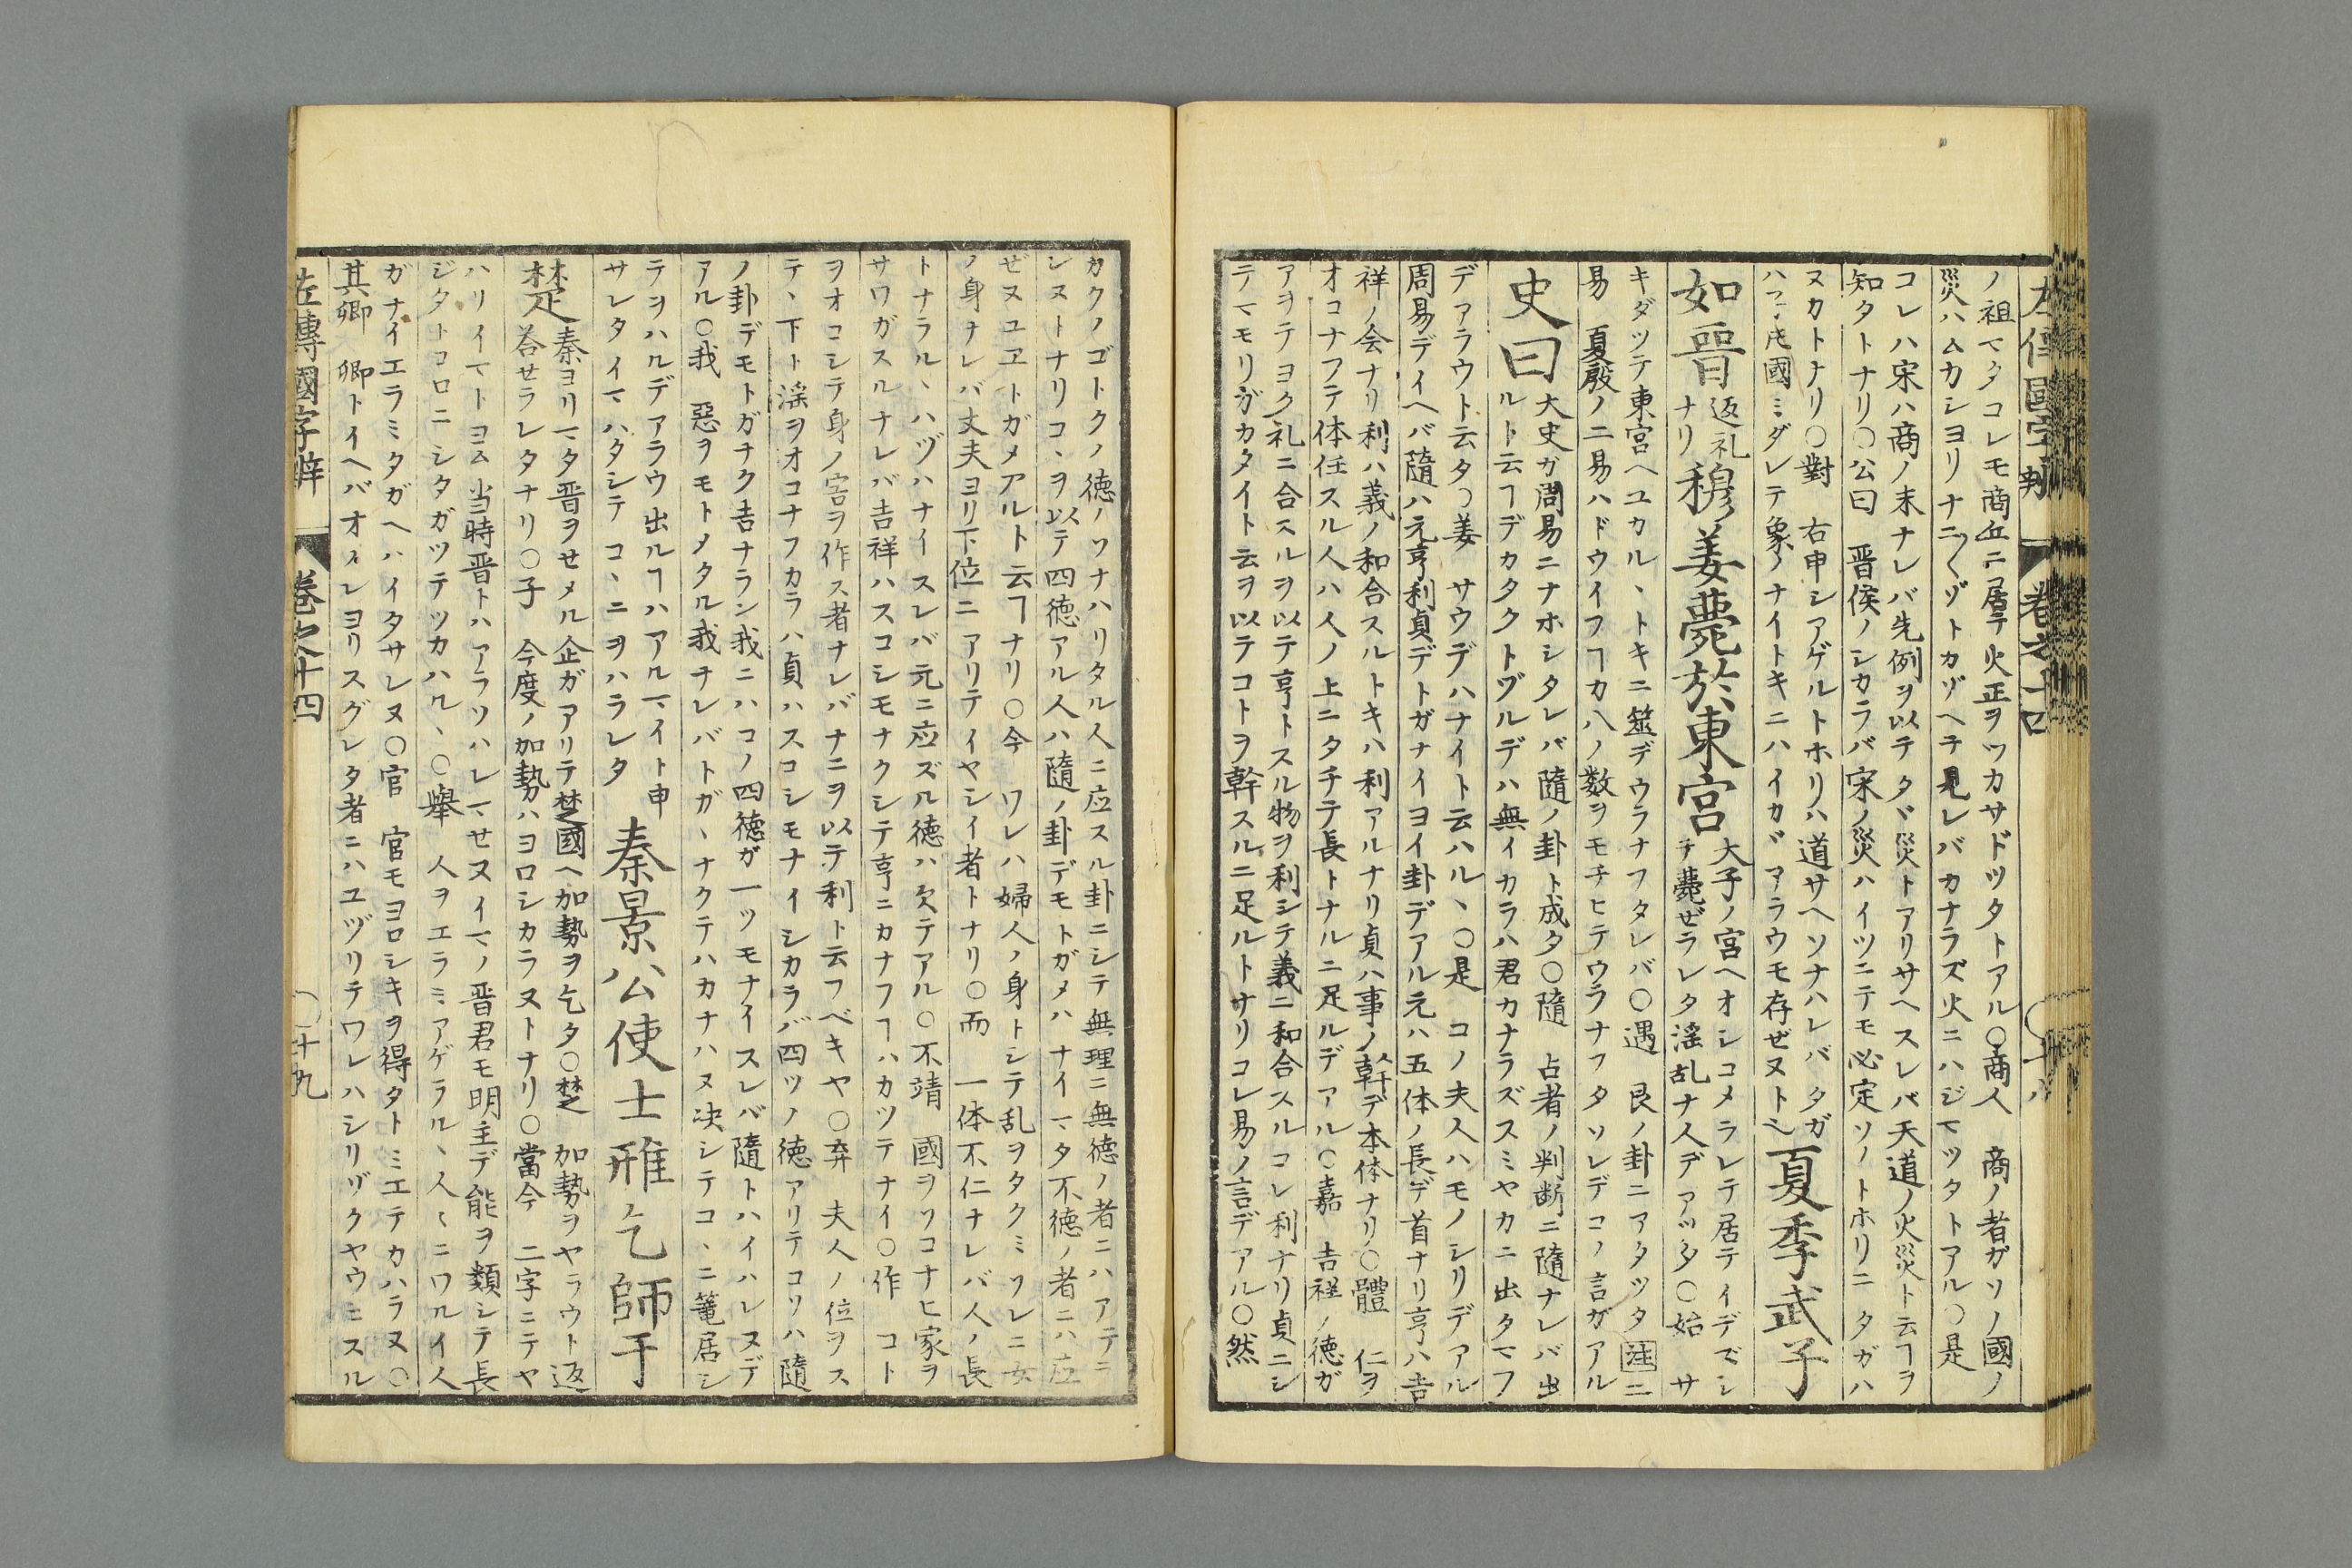 ノ祖マタコレモ商丘ニ居テ火正ヲツカサドツタトアル〇商人 商ノ者ガソノ國ノ
災ハムカシヨリナニ〱ゾトカゾヘテ見レバカナラズ火ニハジマツタトアル〇是
コレハ宋ハ商ノ末ナレバ先例ヲ以テタヾ災トアリサヘスレバ天道ノ火災ト云ヿヲ
知タトナリ〇公曰 晋侯ノシカラバ宋ノ災ハイツニテモ必定ソノトホリニタガハ
ヌカトナリ〇對 右申シアゲルトホリハ道サヘソナハレバタガ
國ミダレテ象ノナイトキニハイカヾアラウモ存ゼヌト
夏季武子
如晋
返礼
ナリ
穆姜薨於東宮
大子ノ宮ヘオシコメラレテ居テイデマシ
テ薨ゼラレタ淫乱ナ人デアツタ〇始 サ
キダツテ東宮ヘユカルヽトキニ筮デウラナフタレバ〇遇 艮ノ卦ニアタツタ注ニ
易 夏殷ノ二易ハドウイフヿカ八ノ数ヲモチヒテウラナフタソレデコノ言ガアル
史曰
大史ガ周易ニナホシタレバ隨ノ卦ト成タ〇隨 占者ノ判断ニ隨ナレバ出
ルト云ヿデカタクトヅルデハ無イカラハ君カナラズスミヤカニ出タマフ
デアラウト云タ〇姜 サウデハナイト云ハルヽ〇是 コノ夫人ハモノシリデアル
周易デイヘバ隨ハ元亨利貞デトガナイヨイ卦デアル元ハ五体ノ長デ首ナリ亨ハ吉
祥ノ会ナリ利ハ義ノ和合スルトキハ利アルナリ貞ハ事ノ幹デ本体ナリ〇體 仁ヲ
オコナフテ体任スル人ハ人ノ上ニタチテ長トナルニ足ルデアル〇嘉 吉祥ノ徳ガ
アヲテヨク礼ニ合スルヲ以テ亨トスル物ヲ利シテ義ニ和合スルコレ利ナリ貞ニシ
テマモリガカタイト云ヲ以テコトヲ幹スルニ足ルトサリコレ易ノ言デアル〇然
カクノゴトクノ徳ノソナハリタル人ニ应スル卦ニシテ無理ニ無徳ノ者ニハアテニ
シヌトナリコヽヲ以テ四徳アル人ハ隨ノ卦デモトガメハナイマタ不徳ノ者ニハ应
ゼヌユヱトガメアルト云ヿナリ〇今 ワレハ婦人ノ身トシテ乱ヲタクミソレニ女
ノ身ナレバ丈夫ヨリ下位ニアリテイヤシイ者トナリ〇而 一体不仁ナレバ人ノ長
トナラルヽハヅハナイスレバ元ニ应ズル徳ハ欠テアル〇不靖 國ヲソコナヒ家ヲ
サワガスルナレバ吉祥ハスコシモナクシテ亨ニカナフヿハカツテナイ〇作 コト
ヲオコシテ身ノ害ヲ作ス者ナレバナニヲ以テ利ト云フベキヤ〇弃 夫人ノ位ヲス
テヽ下ト淫ヲオコナフカラハ貞ハスコシモナイシカラバ四ツノ徳アリテコソハ隨
ノ卦デモトガナク吉ナラン我ニハコノ四徳ガ一ツモナイスレバ隨トハイハレヌデ
アル〇我 惡ヲモトメタル我ナレバトガヽナクテハカナハヌ决シテコヽニ篭居シ
テヲハルデアラウ出ルヿハアルマイト申
サレタイマハタシテコヽニヲハラレタ
秦景公使士雃乞師于
楚
秦ヨリマタ晋ヲセメル企ガアリテ楚國ヘ加勢ヲ乞タ〇楚 加勢ヲヤラウト返
荅セラレタナリ〇子 今度ノ加勢ハヨロシカラヌトナリ〇當今 二字ニテヤ
ハリイマトヨム当時晋トハアラソハレマセヌイマノ晋君モ明主デ能ヲ類シテ長
ジタトコロニシタガツテツカハルヽ〇舉 人ヲエラミアゲラルヽ人〻ニワルイ人
ガナイエラミタガヘハイタサレヌ〇官 官モヨロシキヲ得タトミエテカハラヌ〇
其卿 卿トイヘバオノレヨリスグレタ者ニハユヅリテワレハシリゾクヤウニスル
左傳國字辨 巻之十四 〇十九